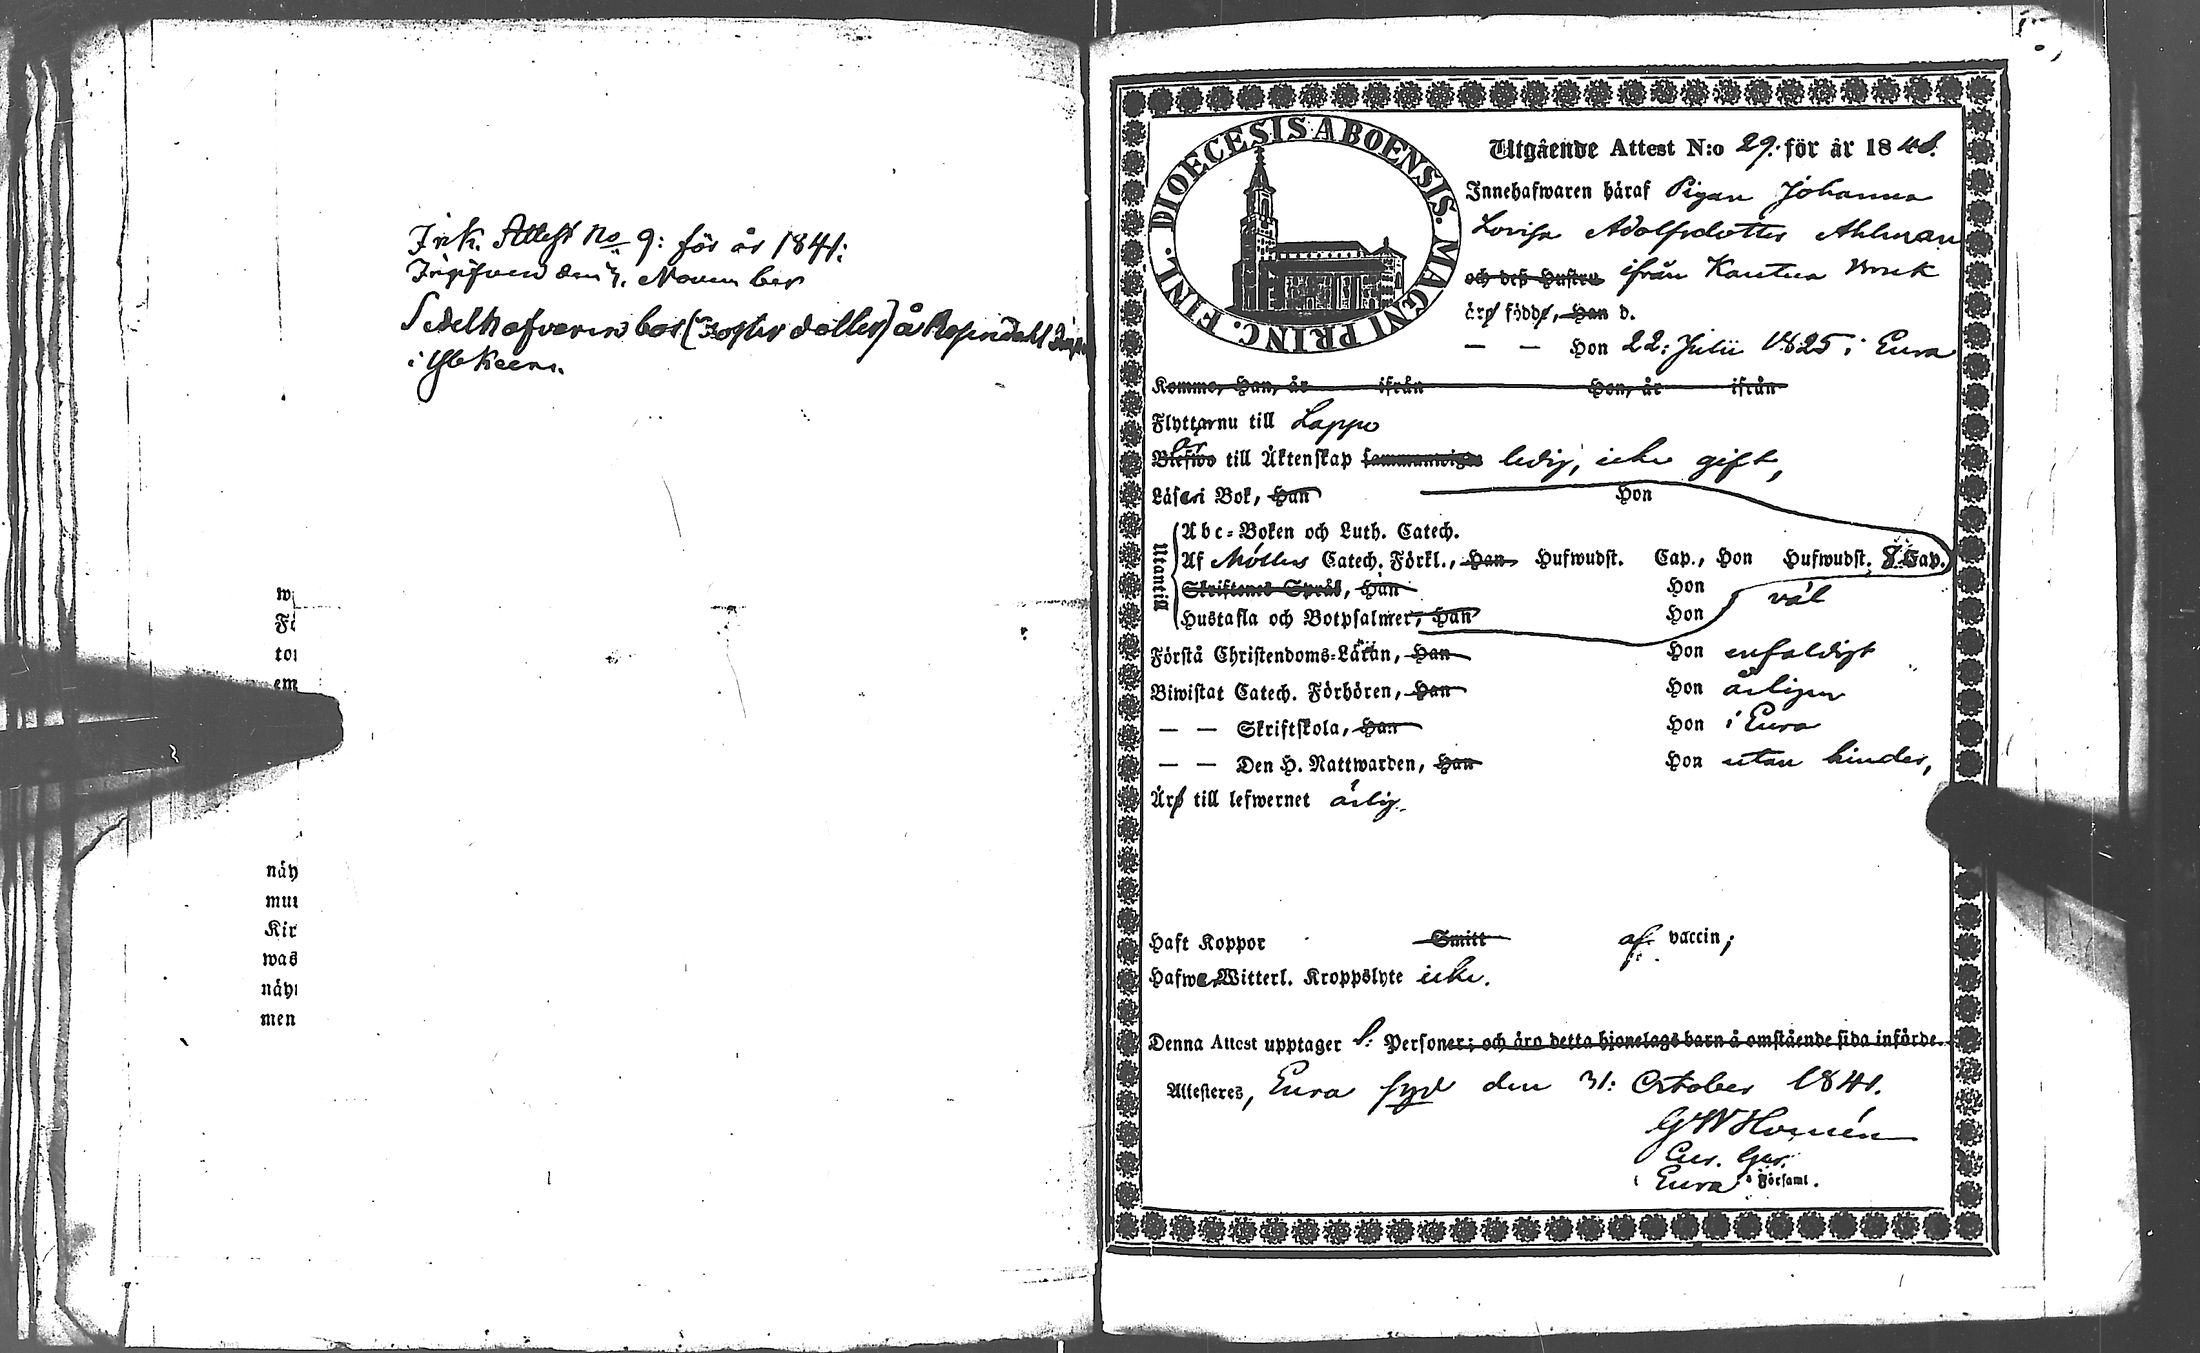 Ink. Attest No 9: för år 1841:
den 7. November
Sedelhafvaren bor (Foster dotter) å Rosendahl
i Ylikeen.
w
Fö
tor
em
näh
mur
Kir
was
näh
men
DIOECESIS ABOENSIS. MAGNI PRINC. FINL.
Utgående Attest N:o 29. för år 1841.
Innehafwaren häraf Pigan Johanna
Lovisa Adolfsdotter Ahlman
och deß Hustru ifrån Kautua Bruk
äro född, Han d.
— — Hon 22: Julii 1825 i Eura
Komne, Han, år ifrån Hon, år ifrån
Flyttar nu till Lappo
Är till Äktenskap ledig, icke gift,
Läser i Bok, Han Hon
Utantill
Abc-Boken och Luth. Catech.
Af Möllers Catech. Förkl., Han Hufwudst. Cap., Hon Hufwudst. 8 Cap.
Skriftenes Språk, Han Hon väl
Hustafla och Botpsalmer, Han Hon
Förstå Christendoms-Läran, Han Hon enfaldigt
Biwistat Catech. Förhören, Han Hon årligen
— — Skriftskola, Han Hon i Eura
— — Den H. Nattwarden, Han Hon utan hinder,
Är till lefwernet ärlig.
Haft Koppor Smitt af vaccin;
Hafwer Witterl. Kroppslyte icke.
Denna Attest upptager 1: Personer; och äro detta hjonelags barn å omstående sida införde.
Attesteres, Eura den 31: October 1841.
G W Homén
i Eura Församl.